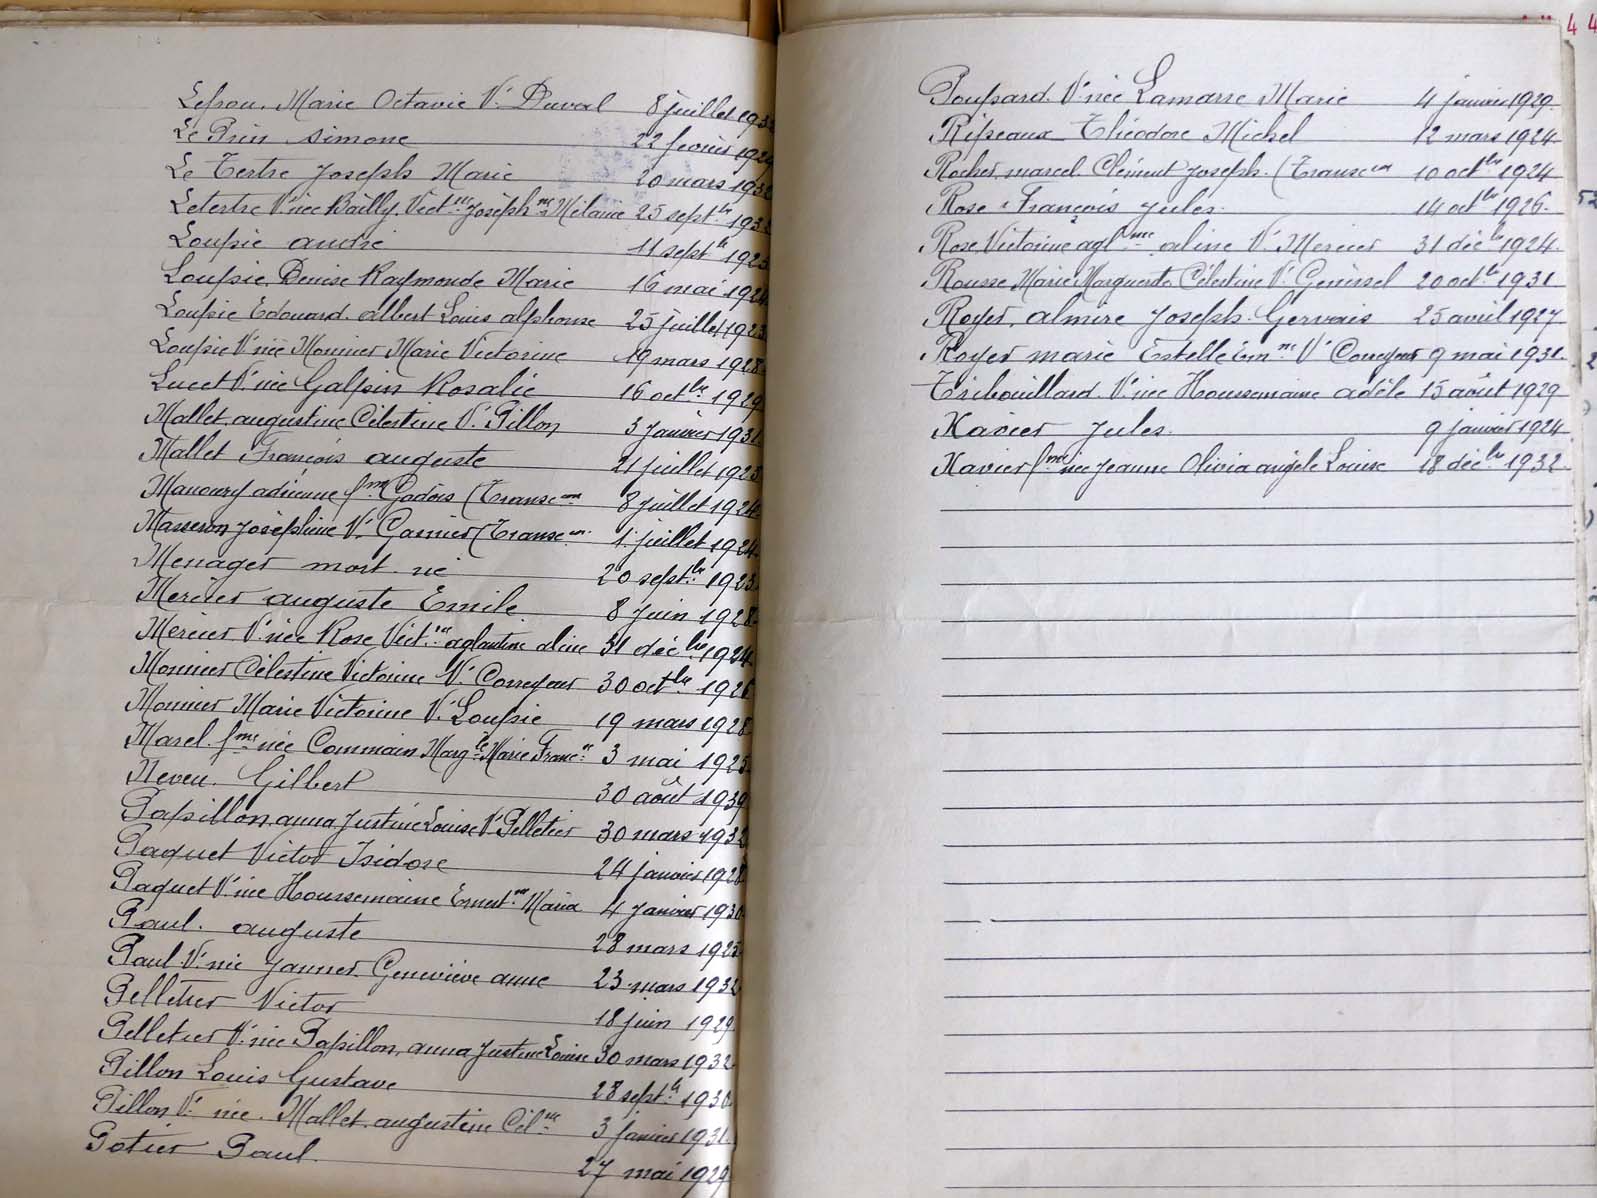 Marie Octavie Vve Duval 8 juillet
Le Prin Simone 22 février
Le Tertre Joseph Marie 20 mars 1932
Letertre Vve née Bailly Vict.ne Joséph.ne Mélanie 25 sept.bre 1932
Loupie André 11 sept.bre 1923
Loupie Denise Raymonde Marie 16 mai 1924
Loupie Edouard Albert Louis Alphonse 25 juillet 1923
Loupie Vve née Monnier Marie Victorine 19 mars 1928
Lucet Vve née Galpin Rosalie 16 oct.bre 1929
Mallet Augustine Célestine Vve Pillon 3 janvier 1931
Mallet François Auguste 21 juillet 1923
Manoury Adrienne fme Godois (Transc.on 8 juillet 1924
Masseron Joséphine Vve Garnier (Transc.on 1er juillet 1924
Menager mort né 20 sept.bre 1923
Mercier Auguste Emile 8 juin 1928
Mercier Vve née Rose Vict.ne Aglantine Aline 31 déc.bre 1924
Monnier Célestine Victorine Vve 30 oct.bre 1926
Monnier Marie Victorine Vve Loupie 19 mars 1928
fme née Commain Marg.te Marie Franc.se 3 mai 1925
Neveu Gilbert 30 août 1939
Papillon Anna Justine Louise Vve Pelletier 30 mars 1932
Paquet Victor Isidore 24 janvier 1928
Paquet Vve née Houssemaine Ernest.ne Maria 4 janvier 1930
Paul Auguste 28 mars 1925
Paul Vve née Geneviève Anne 23 mars 1932
Pelletier Victor 18 juin 1929
Pelletier Vve née Papillon, Anna Justine Louise 30 mars 1932
Pillon Louis Gustave 28 sept.bre 1930
Pillon Vve née Mallet Augustine Cél.ne 3 janvier 1931
Potier Paul 27 mai 1929
44
Poupard Vve née Lamarre Marie 4 janvier 1929
Ripeaux Théodore Michel 12 mars 1924
Rocher Marcel Clément Joseph (Transc.on 10 oct.bre 1924
Rose François Jules 14 oct.bre 1926
Rose Victorine Agl.ne Aline Vve Mercier 31 déc.bre 1924
Rousse Marie Marguerite Célestine Vve 20 oct.bre 1931
Royer Almire Joseph Gervais 25 avril 1927
Royer Marie Estelle Vve 9 mai 1931
Tribouillard Vve née Houssemaine Adèle 15 août 1929
Xavier Jules 9 janvier 1924
Xavier fme née Jeanne Olivia Angèle Louise 18 déc.bre 1932